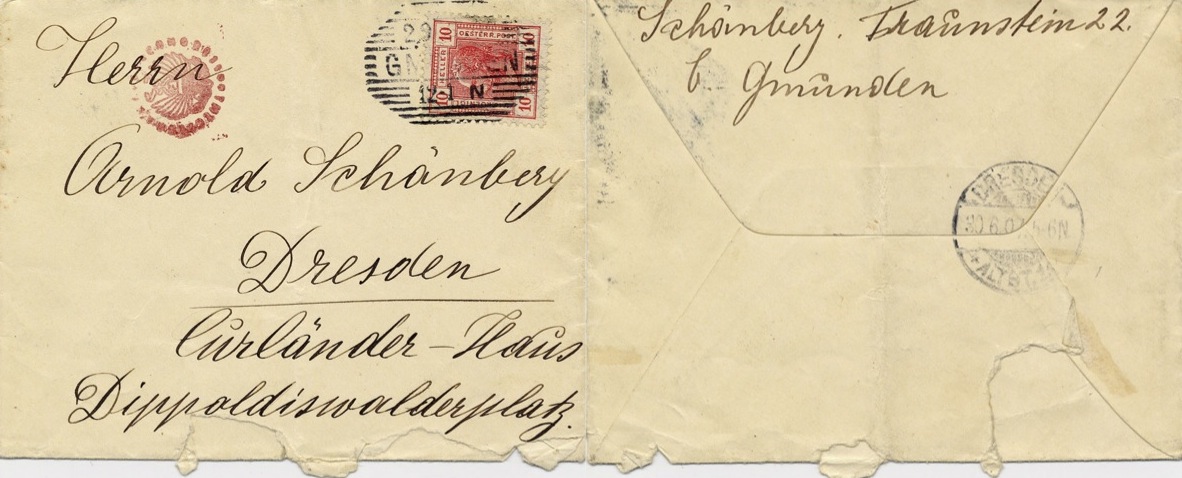 Herrn
Arnold Schönberg
Dresden
Curländer-Haus
Dippoldiswalderplatz.
10 OESTERR. POST 10
HELLER
10 10
12-1 N
Schönberg. Traunstein 22.
b Gmunden
DRESDEN
30.6.07. 5-6N
ALTST.